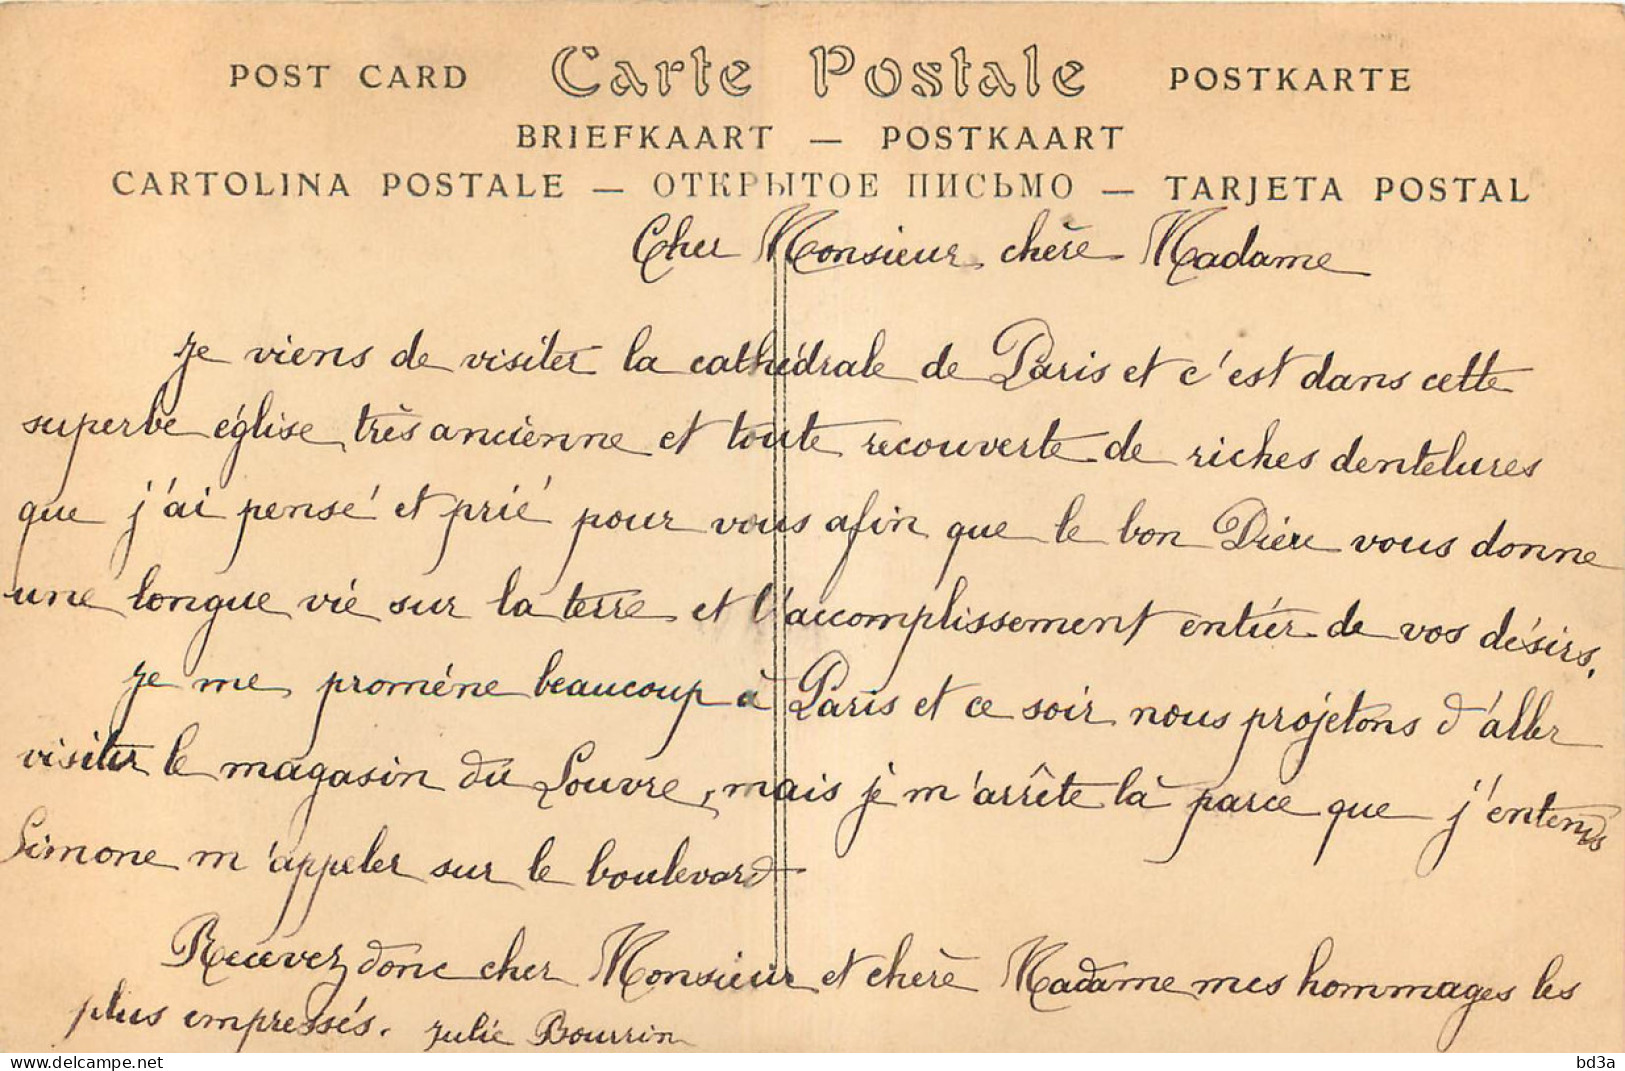 POST CARD Carte Postale POSTKARTE
BRIEFKAART — POSTKAART
CARTOLINA POSTALE — ОТКРЫТОЕ ПИСЬМО — TARJETA POSTAL
Cher Monsieur, chère Madame
Je viens de visiter la cathédrale de Paris et c'est dans cette
superbe église, très ancienne et toute recouverte de riches dentelures
que j'ai pensé et prié pour vous afin que le bon Dieu vous donne
une longue vie sur la terre et l'accomplissement entier de vos désirs.
Je me promène beaucoup à Paris et ce soir nous projetons d'aller
visiter le magasin du Louvre, mais je m'arrête là parce que j'entends
Simone m'appeler sur le boulevard
Recevez donc cher Monsieur et chère Madame mes hommages les
plus empressés. Julie Bourrin
bd3a